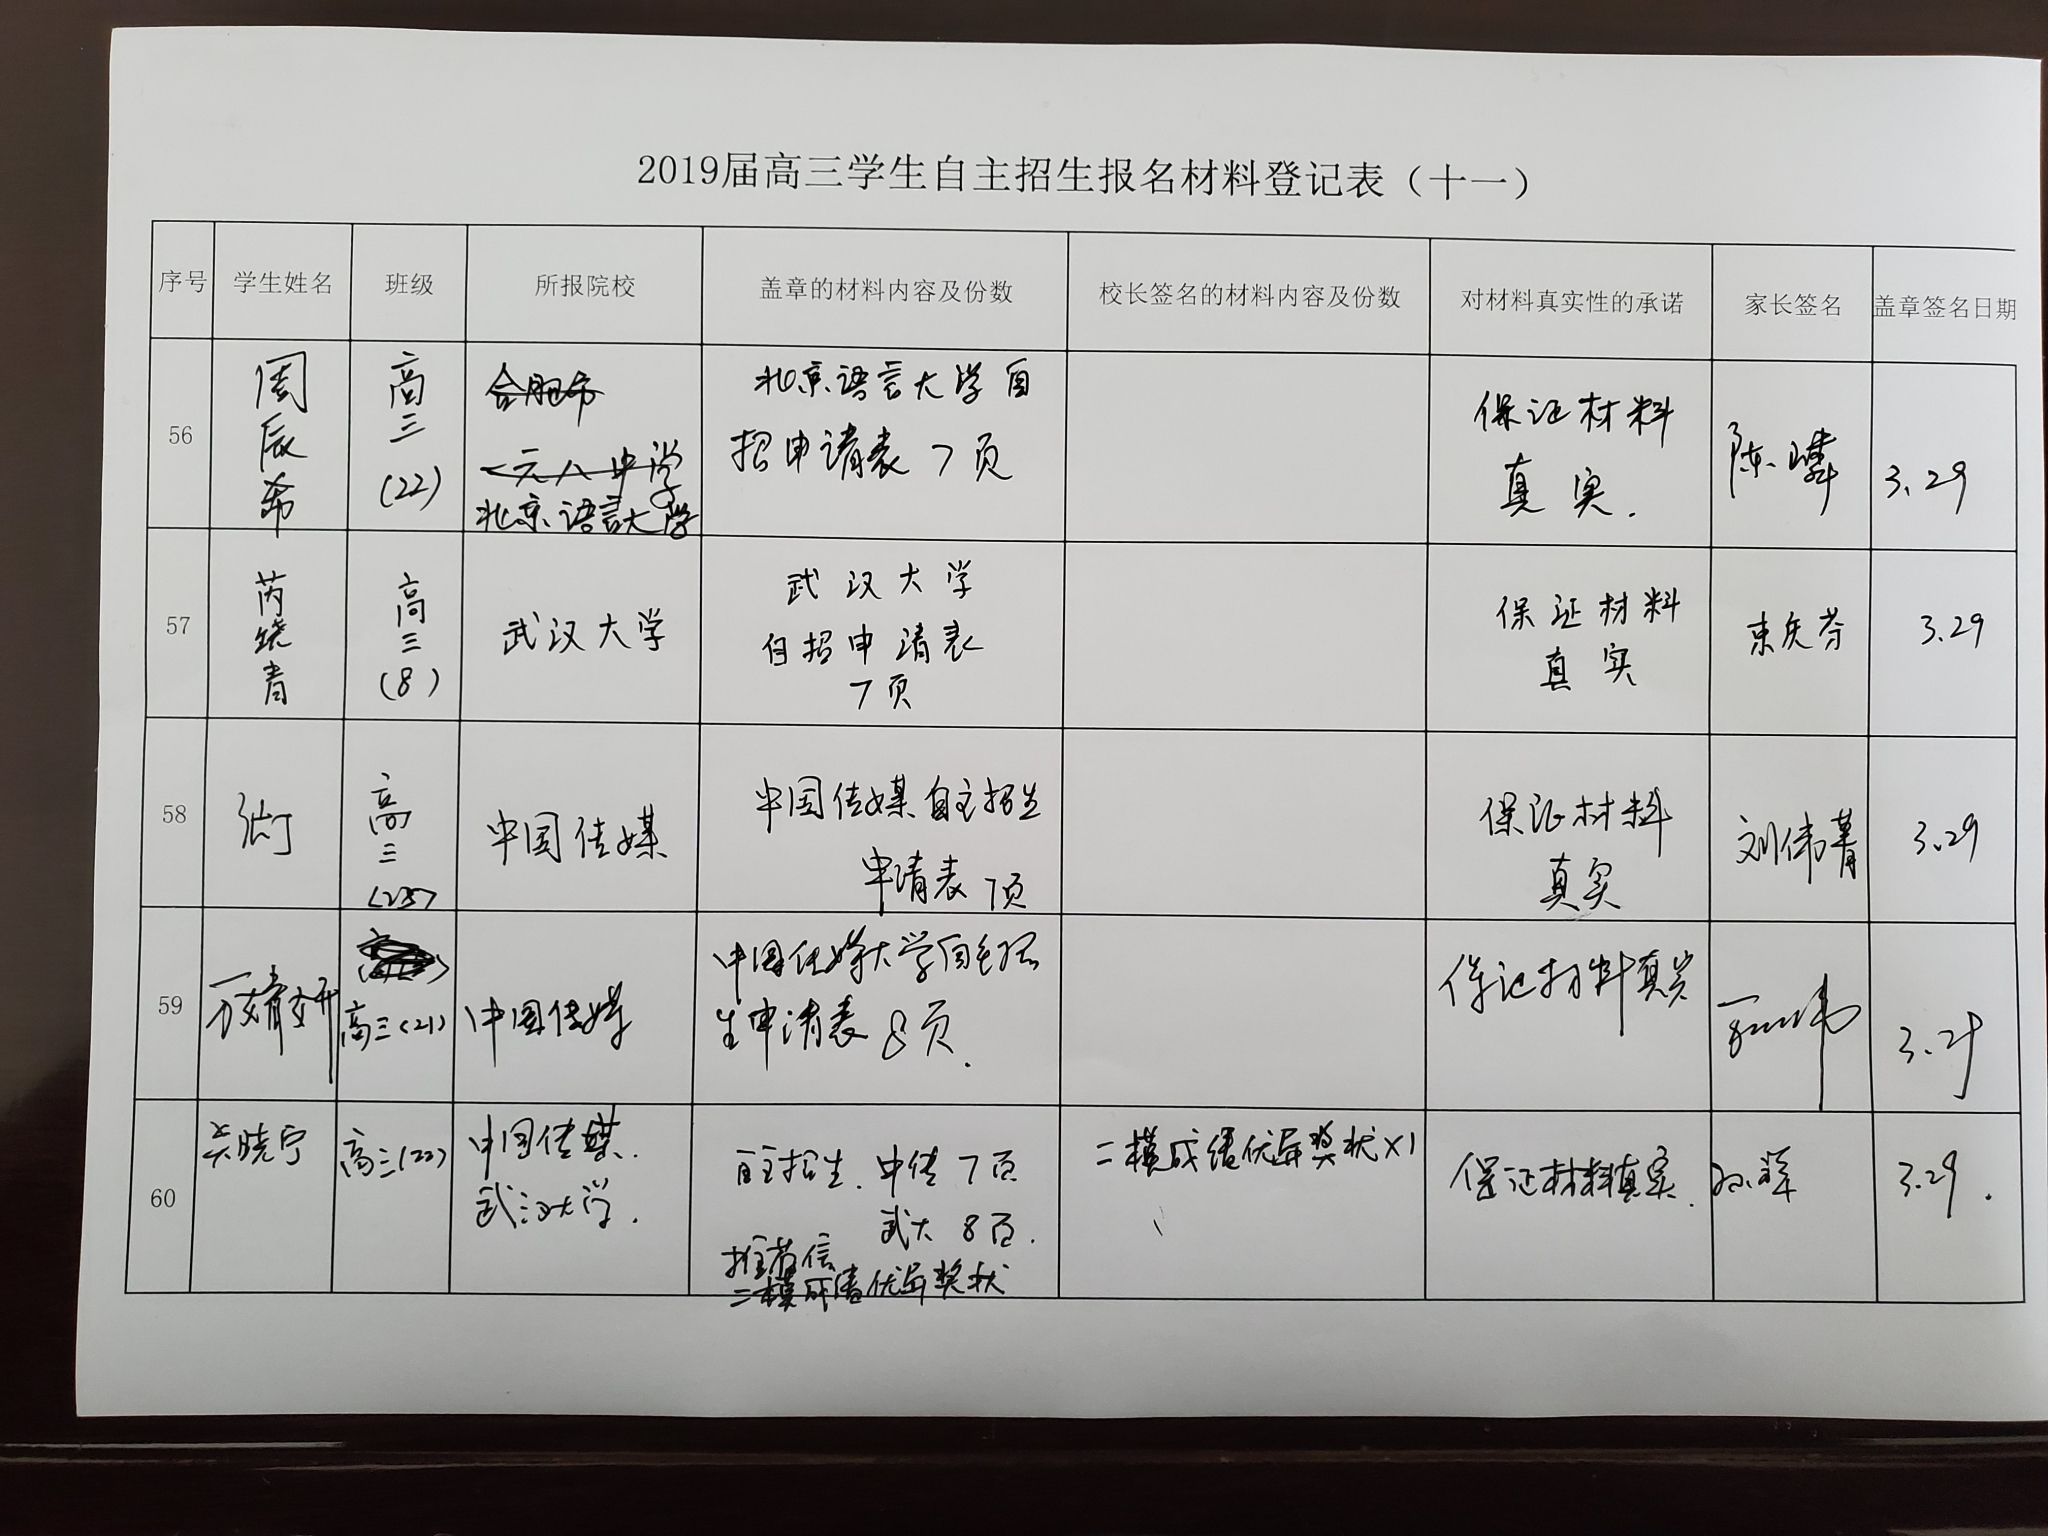 2019届高三学生自主招生报名材料登记表（十一）
序号 学生姓名 班级 所报院校 盖章的材料内容及份数 校长签名的材料内容及份数 对材料真实性的承诺 家长签名 盖章签名日期
56
周辰希
高三
(22)
合肥市
一六八中学
北京语言大学
北京语言大学自
招申请表 7页
保证材料
真实.
陈
3.29
57
芮晓青
高三
(8)
武汉大学
武汉大学
自招申请表
7页
保证材料
真实
束庆芬
3.29
58
高三
中国传媒
中国传媒自主招生
申请表 7页
保证材料
真实
刘伟菁
3.29
59
万婧妍
高三(21)
中国传媒
中国传媒大学自主招
生申请表 8页.
保证材料真实
万
3.29
60
吴晓宁
高三(22)
中国传媒.
武汉大学.
自主招生. 中传 7页
武大 8页.
推荐信
二模成绩优异奖状
二模成绩优异奖状×1
保证材料真实.
3.29.